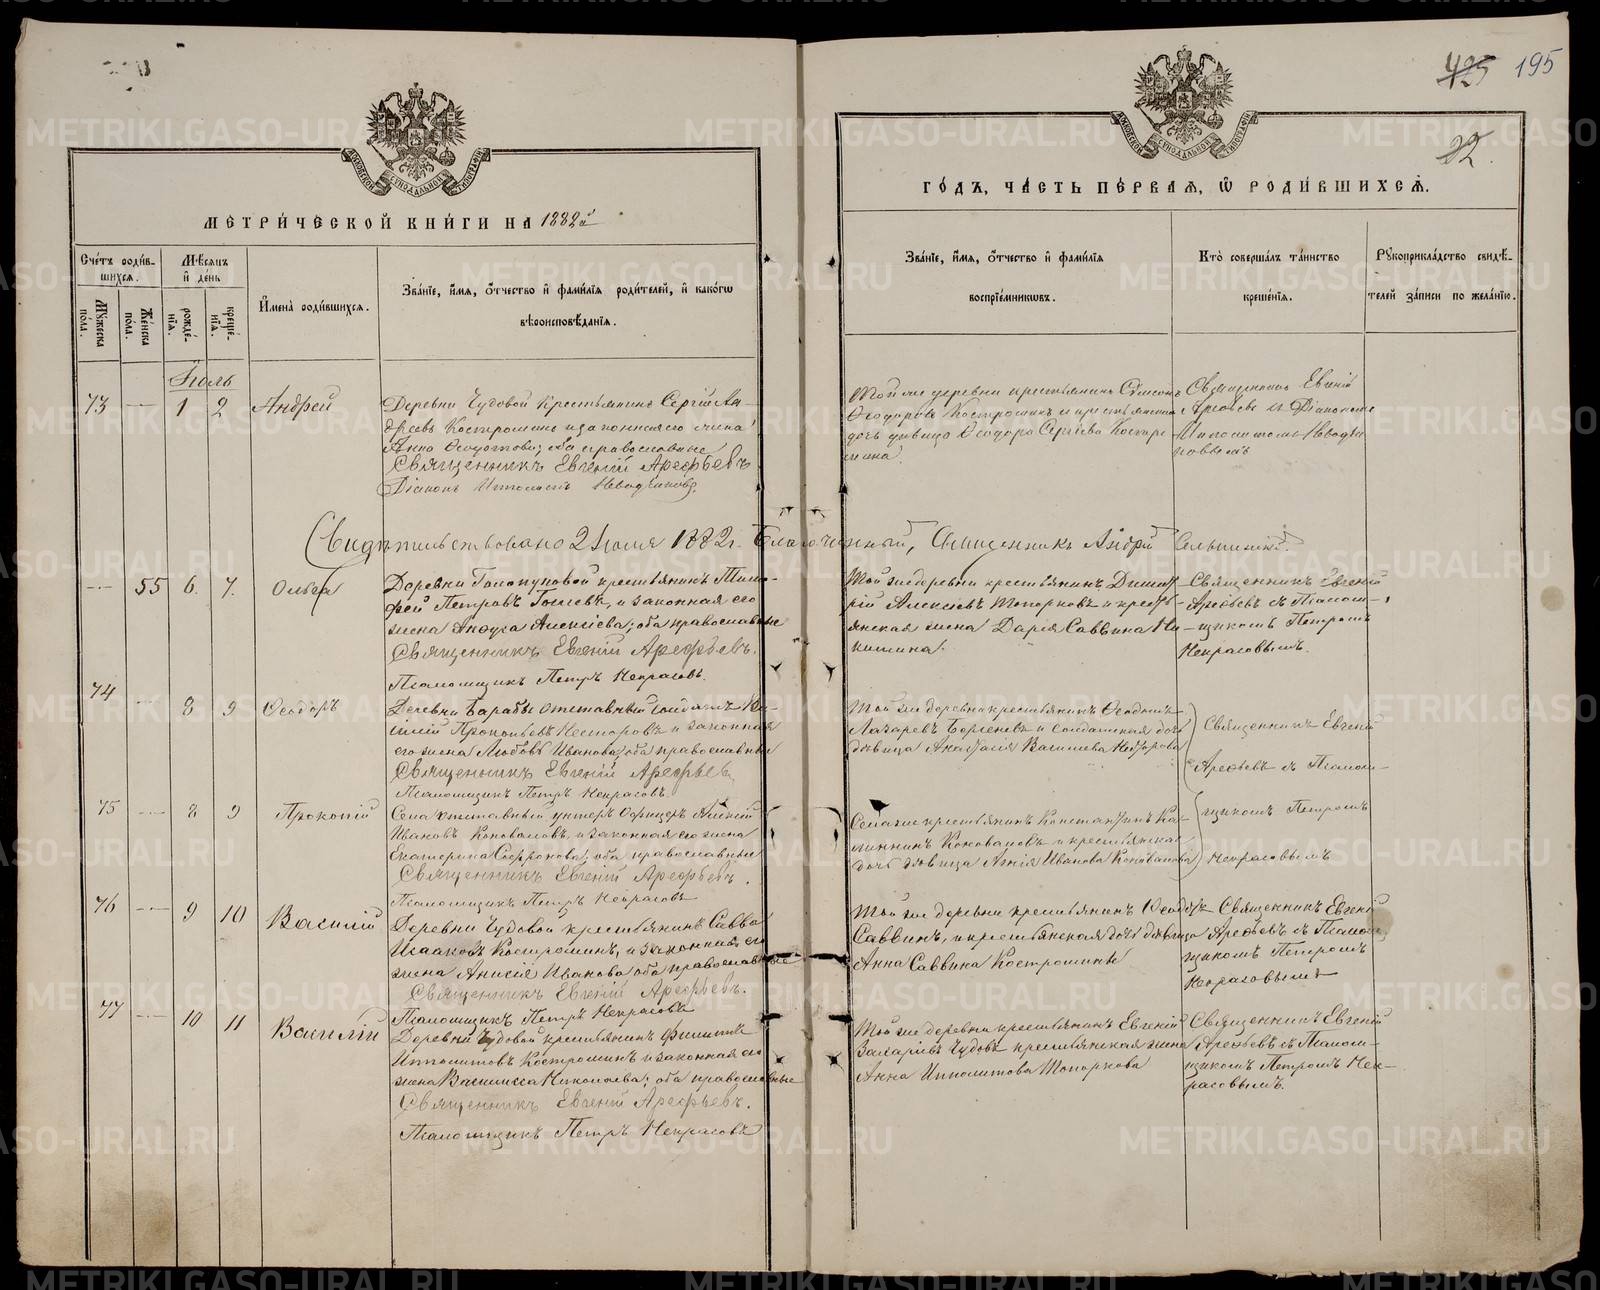 425 195
22.
МОСКОВСКОЙ СѴНОДАЛЬНОЙ ТИПОГРАФІИ
МОСКОВСКОЙ СѴНОДАЛЬНОЙ ТИПОГРАФІИ
МЕТРИ́ЧЕСКОЙ КНИ́ГИ НА 1882й
ГО́ДЪ, ЧА́СТЬ ПЕ́РВАЯ, Ѿ РОДИ́ВШИХСЯ.
Сче́тъ роди́в-
шихся.
Мѣ́сяцъ
и҆ де́нь
Му́жеска
по́ла.
Же́нска
по́ла.
рожде́-
нїя.
креще́-
нїя.
И҆мена̀ роди́вшихся.
Зва́нїе, и҆́мя, ѻ҆́тчество и҆ фами́лїя роди́телей, и҆ како́гѡ
вѣроисповѣ́данїя.
Зва́нїе, и҆́мя, ѻ҆́тчество и҆ фами́лїя
воспрїе́мникѡвъ.
Кто̀ соверша́лъ та́инство
креще́нїя.
Рꙋкоприкла́дство свидѣ́-
телей за́писи по жела́нїю.
Іюль
73 — 1 2 Андрей
Деревни Чудовой крестьянинъ Сергій Ан-
дреевъ Костроминъ и законная его жена
Анна Ѳедотова; оба православные
Священникъ Евгеній Арефьевъ
Діаконъ Ипполитъ
Той же деревни крестьянинъ Симеонъ
Ѳеодоровъ Костроминъ и крестьянина
дочь дѣвица Ѳеодора Сергіева Костро-
мина.
Священникъ Евгеній
Арефьевъ съ Діакономъ
Ипполитомъ
Свидѣтельствовано 2 Іюля 1882 г. Благочинный, Священникъ Андрей
— 55 6. 7. Ольга
Деревни Голопуповой крестьянинъ Тимо-
фей Петровъ и законная его
жена Алексіева; оба православные
Священникъ Евгеній Арефьевъ.
Псаломщикъ Петръ Некрасовъ.
Той же деревни крестьянинъ Димит-
рій Алексѣевъ Топорковъ и кресть-
янская жена Дарія Саввина Ни-
китина.
Священникъ Евгеній
Арефьевъ съ Псалом-
щикомъ Петромъ
Некрасовымъ.
74 — 8 9 Ѳеодоръ
Деревни Барабы отставный солдатъ Ва-
силій Прокопьевъ Несторовъ и законная
его жена Любовь Иванова; оба православные
Священникъ Евгеній Арефьевъ
Псаломщикъ Петръ Некрасовъ.
Той же деревни крестьянинъ
Лазаревъ и солдатская дочь
дѣвица Анастасія Васильева Несторова
Священникъ Евгеній
Арефьевъ съ Псалом-
75 — 8 9 Прокопій
Села отставный унтеръ офицеръ Алексій
Ивановъ Коноваловъ, и законная его жена
Екатерина Софронова; оба православные
Священникъ Евгеній Арефьевъ.
Псаломщикъ Петръ Некрасовъ
Села же крестьянинъ Константинъ Ка-
линнинъ Коноваловъ и крестьянская
дочь дѣвица Иванова Коновалова
щикомъ Петромъ
Некрасовымъ
76 — 9 10 Василій
Деревни Чудовой крестьянинъ Савва
Исааковъ Костроминъ, и законная его
жена Анисія Иванова оба православные
Священникъ Евгеній Арефьевъ.
Псаломщикъ Петръ Некрасовъ
Той же деревни крестьянинъ Ѳеодоръ
Саввинъ, и крестьянская дочь дѣвица
Анна Саввина Костромины
Священникъ Евгеній
Арефьевъ съ Псалом-
щикомъ Петромъ
Некрасовымъ
77 — 10 11 Василій
Деревни Чудовой крестьянинъ Филиппъ
Ипполитовъ Костроминъ и законная его
жена Василисса Николаева; оба православные
Священникъ Евгеній Арефьевъ.
Псаломщикъ Петръ Некрасовъ
Той же деревни крестьянинъ Евгеній
Захаріевъ Чудовъ крестьянская жена
Анна Ипполитова Топоркова
Священникъ Евгеній
Арефьевъ съ Псалом-
щикомъ Петромъ Нек-
расовымъ.
METRIKI.GASO-URAL.RU